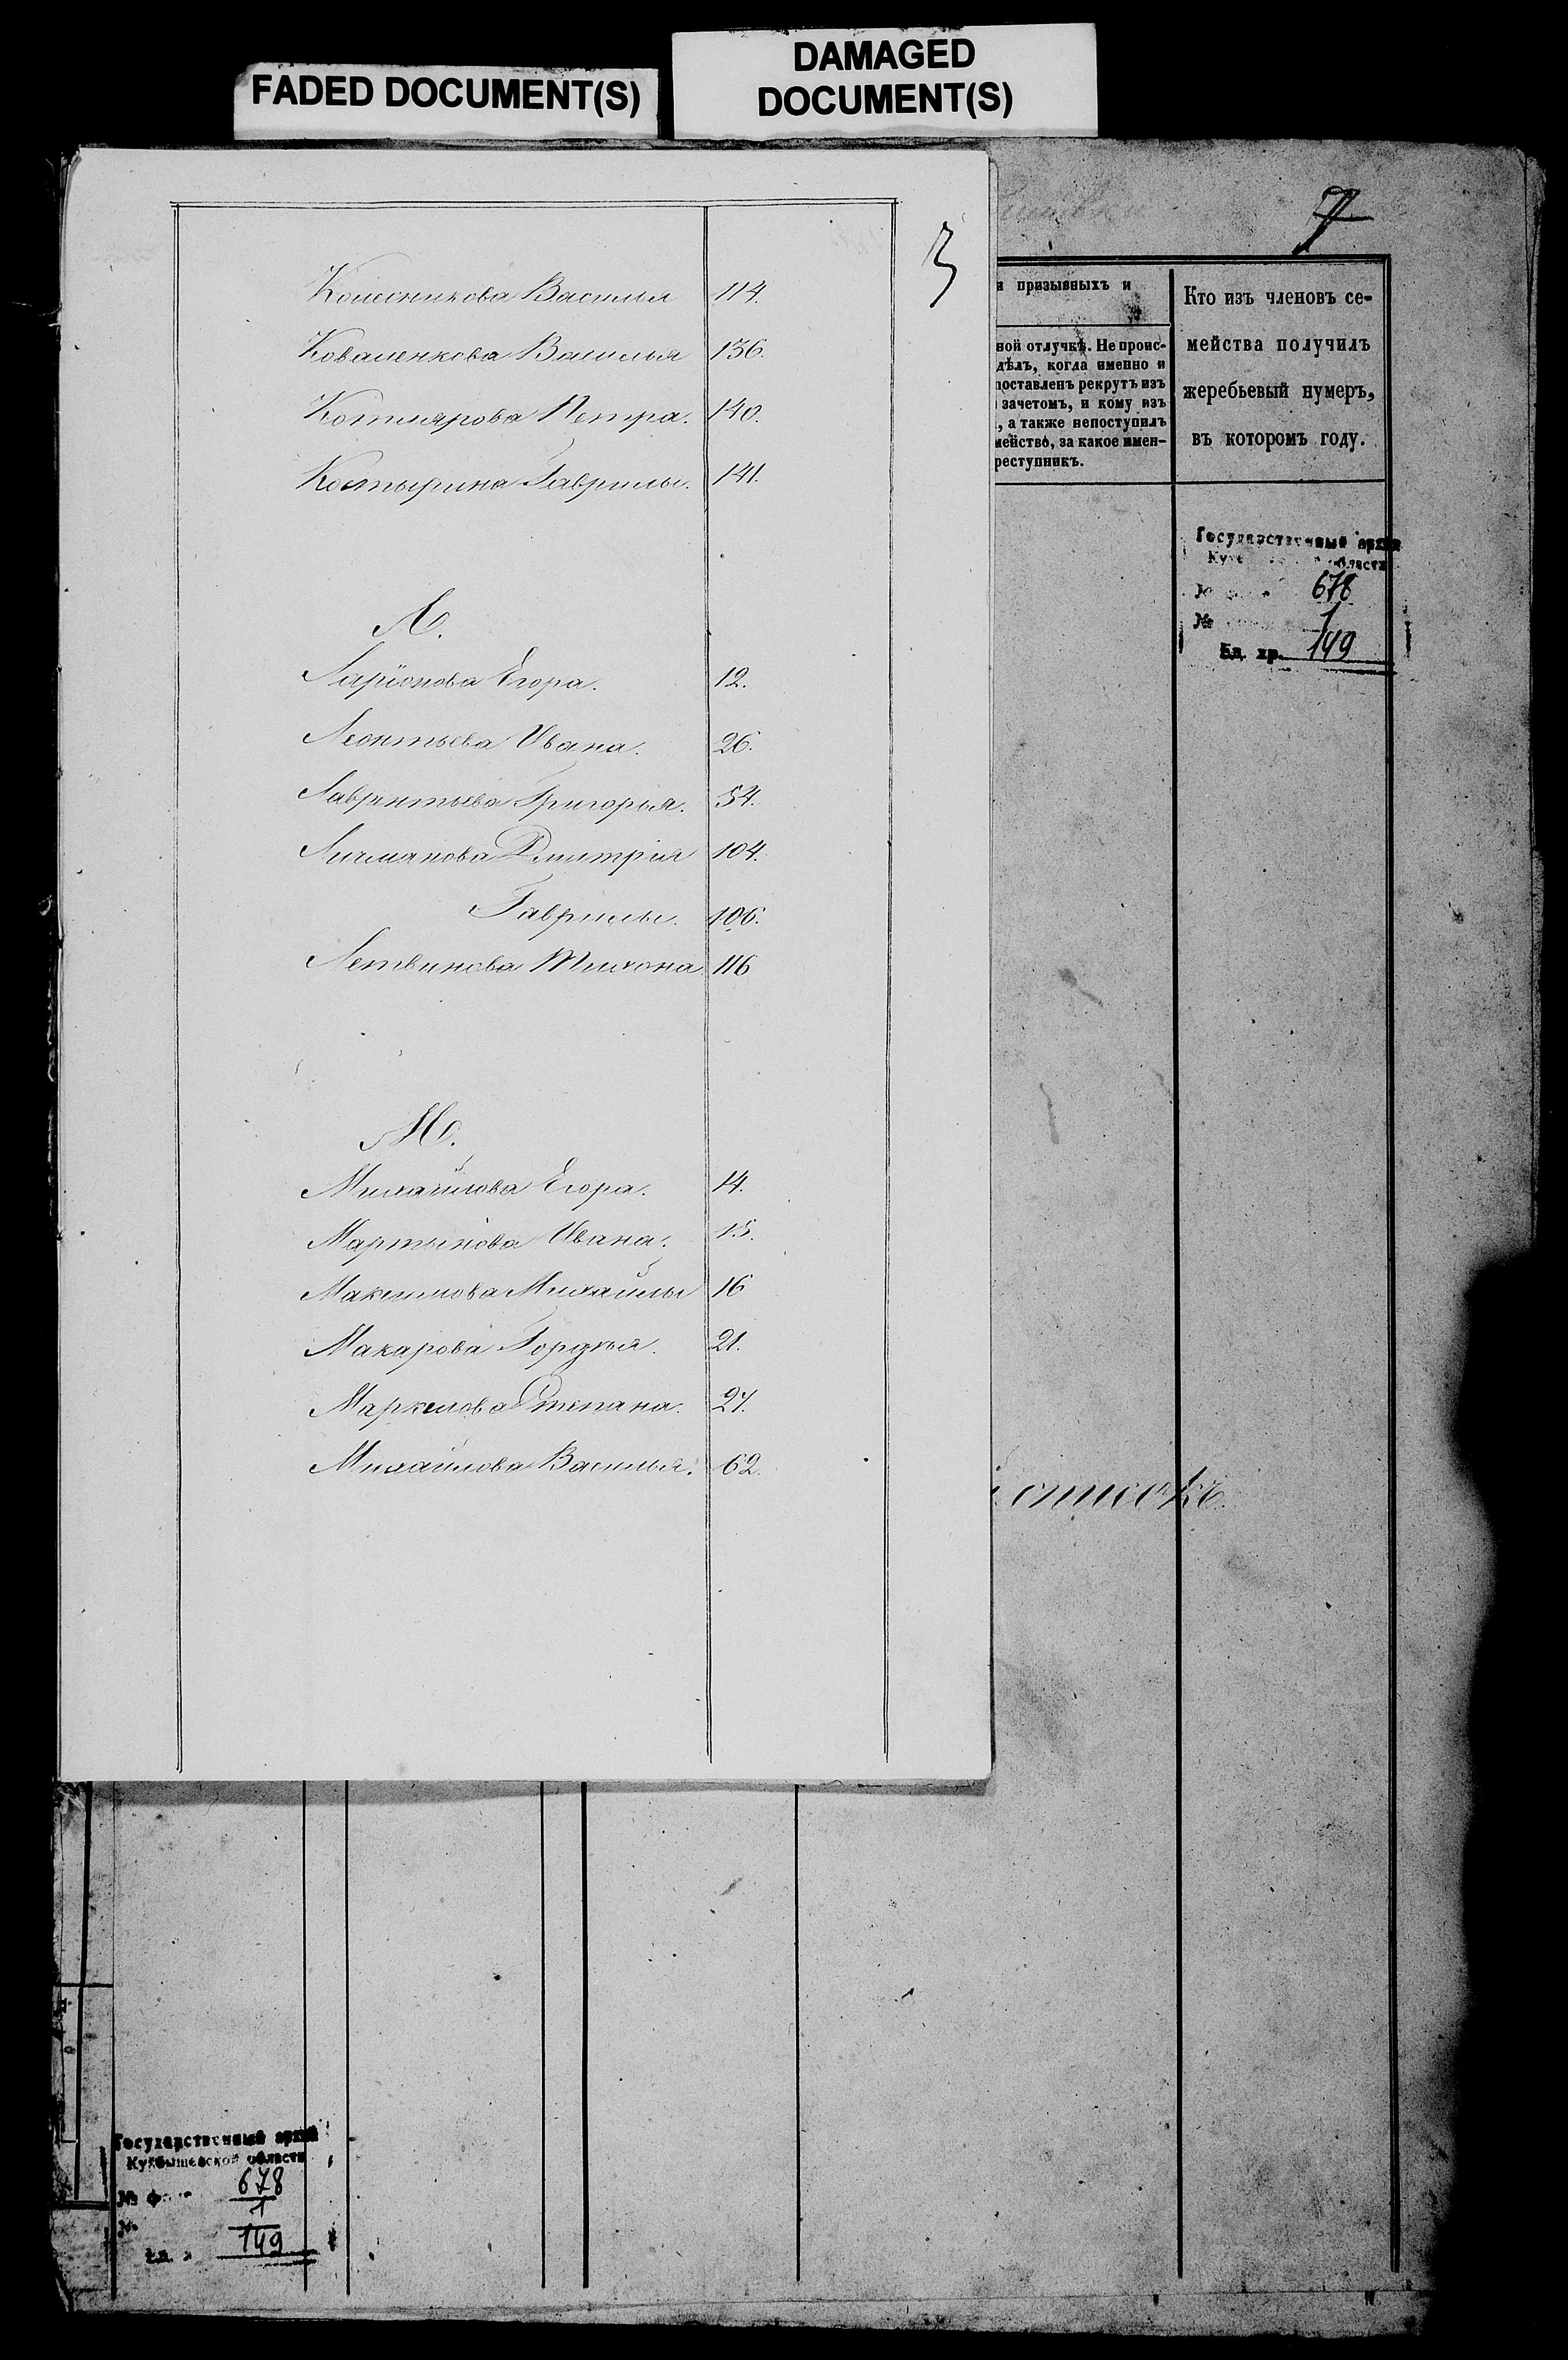 FADED DOCUMENT(S)
DAMAGED
DOCUMENT(S)
3
Колесникова Василья 114.
Коваленкова Василья 136.
Котлярова Петра. 140.
Костырина Гаврилы. 141.
Л.
Ларіонова Егора. 12.
Леонтьева Ивана. 26.
Лаврентьева Григорья. 54.
Лигманова Дмитрія 104.
Гаврилы. 106.
Летвинова Тихона 116
М.
Михайлова Егора. 14.
Мартынова Ивана. 15.
Максимова Михайлы 16
Макарова Гордѣя. 21.
Маркелова Степана. 27.
Михайлова Василья. 62.
7
и призывныхъ и
ной отлучкѣ. Не проис-
дѣлъ, когда именно и
поставленъ рекрутъ изъ
зачетомъ, и кому изъ
, а также непоступилъ
мейство, за какое имен-
реступникъ.
Кто изъ членовъ се-
мейства получилъ
жеребьевый нумеръ,
въ которомъ году.
Государственный архив
области
678
№ 1
Ед. хр. 149
списокъ.
Государственный архив
Куйбышевской области
№ 678
№ 1
Ед. 149